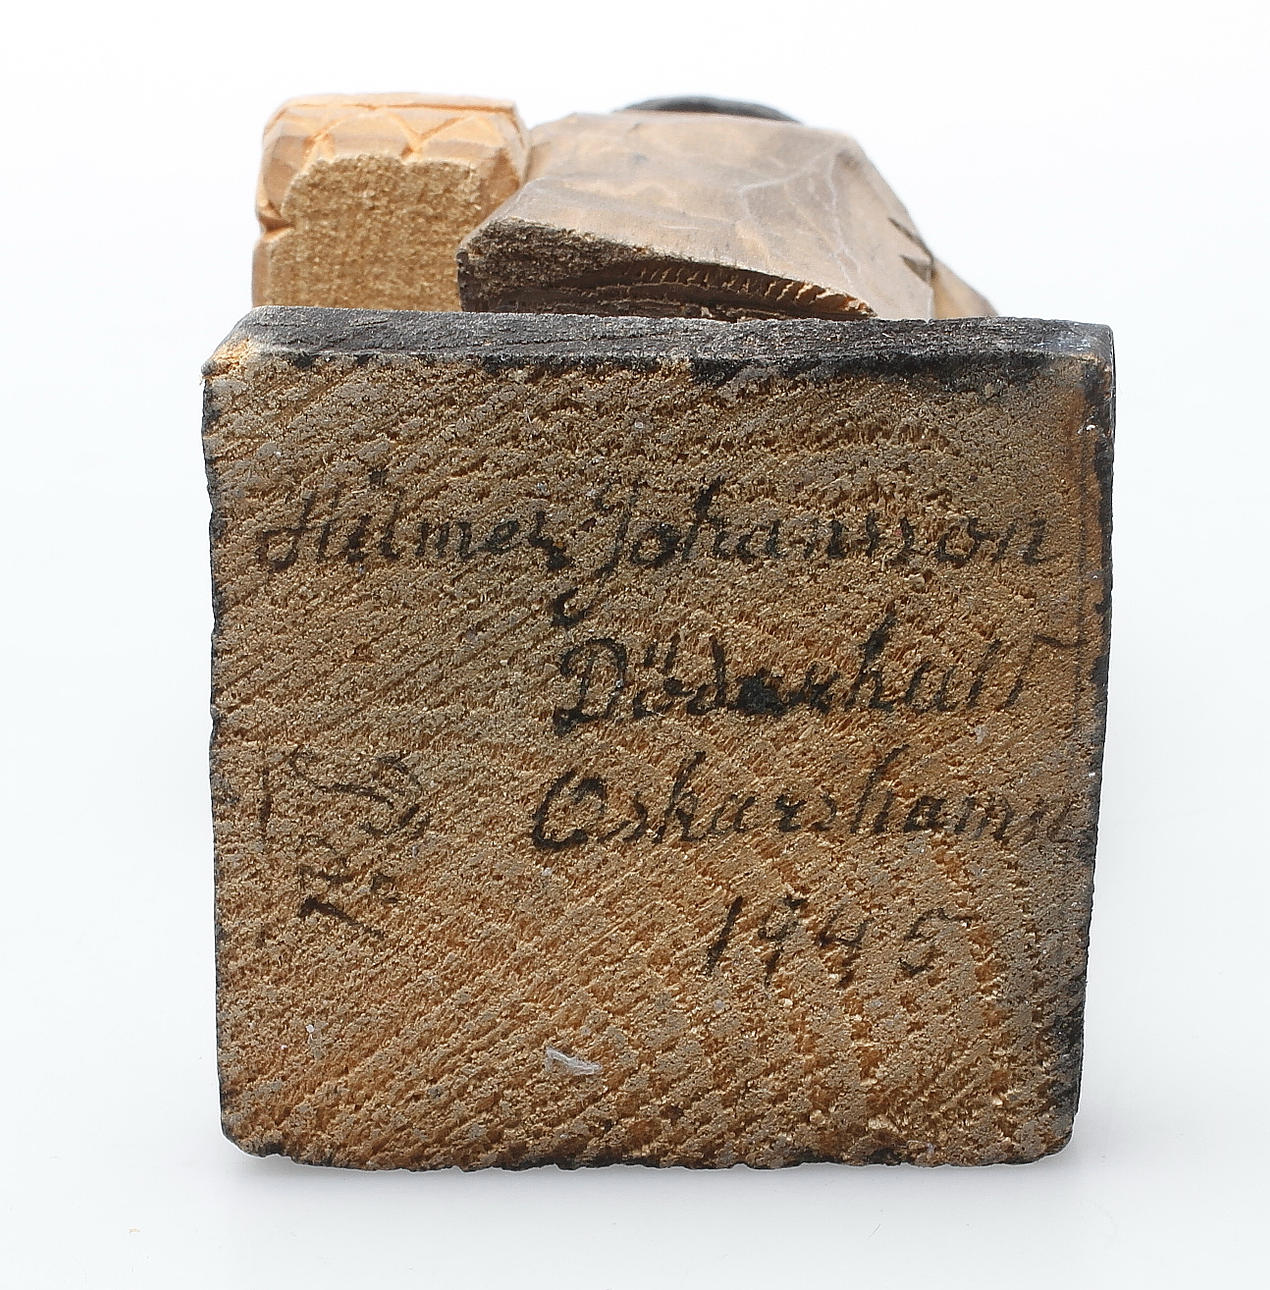 Hilmer Johansson
Döderhult
Oskarshamn
1945